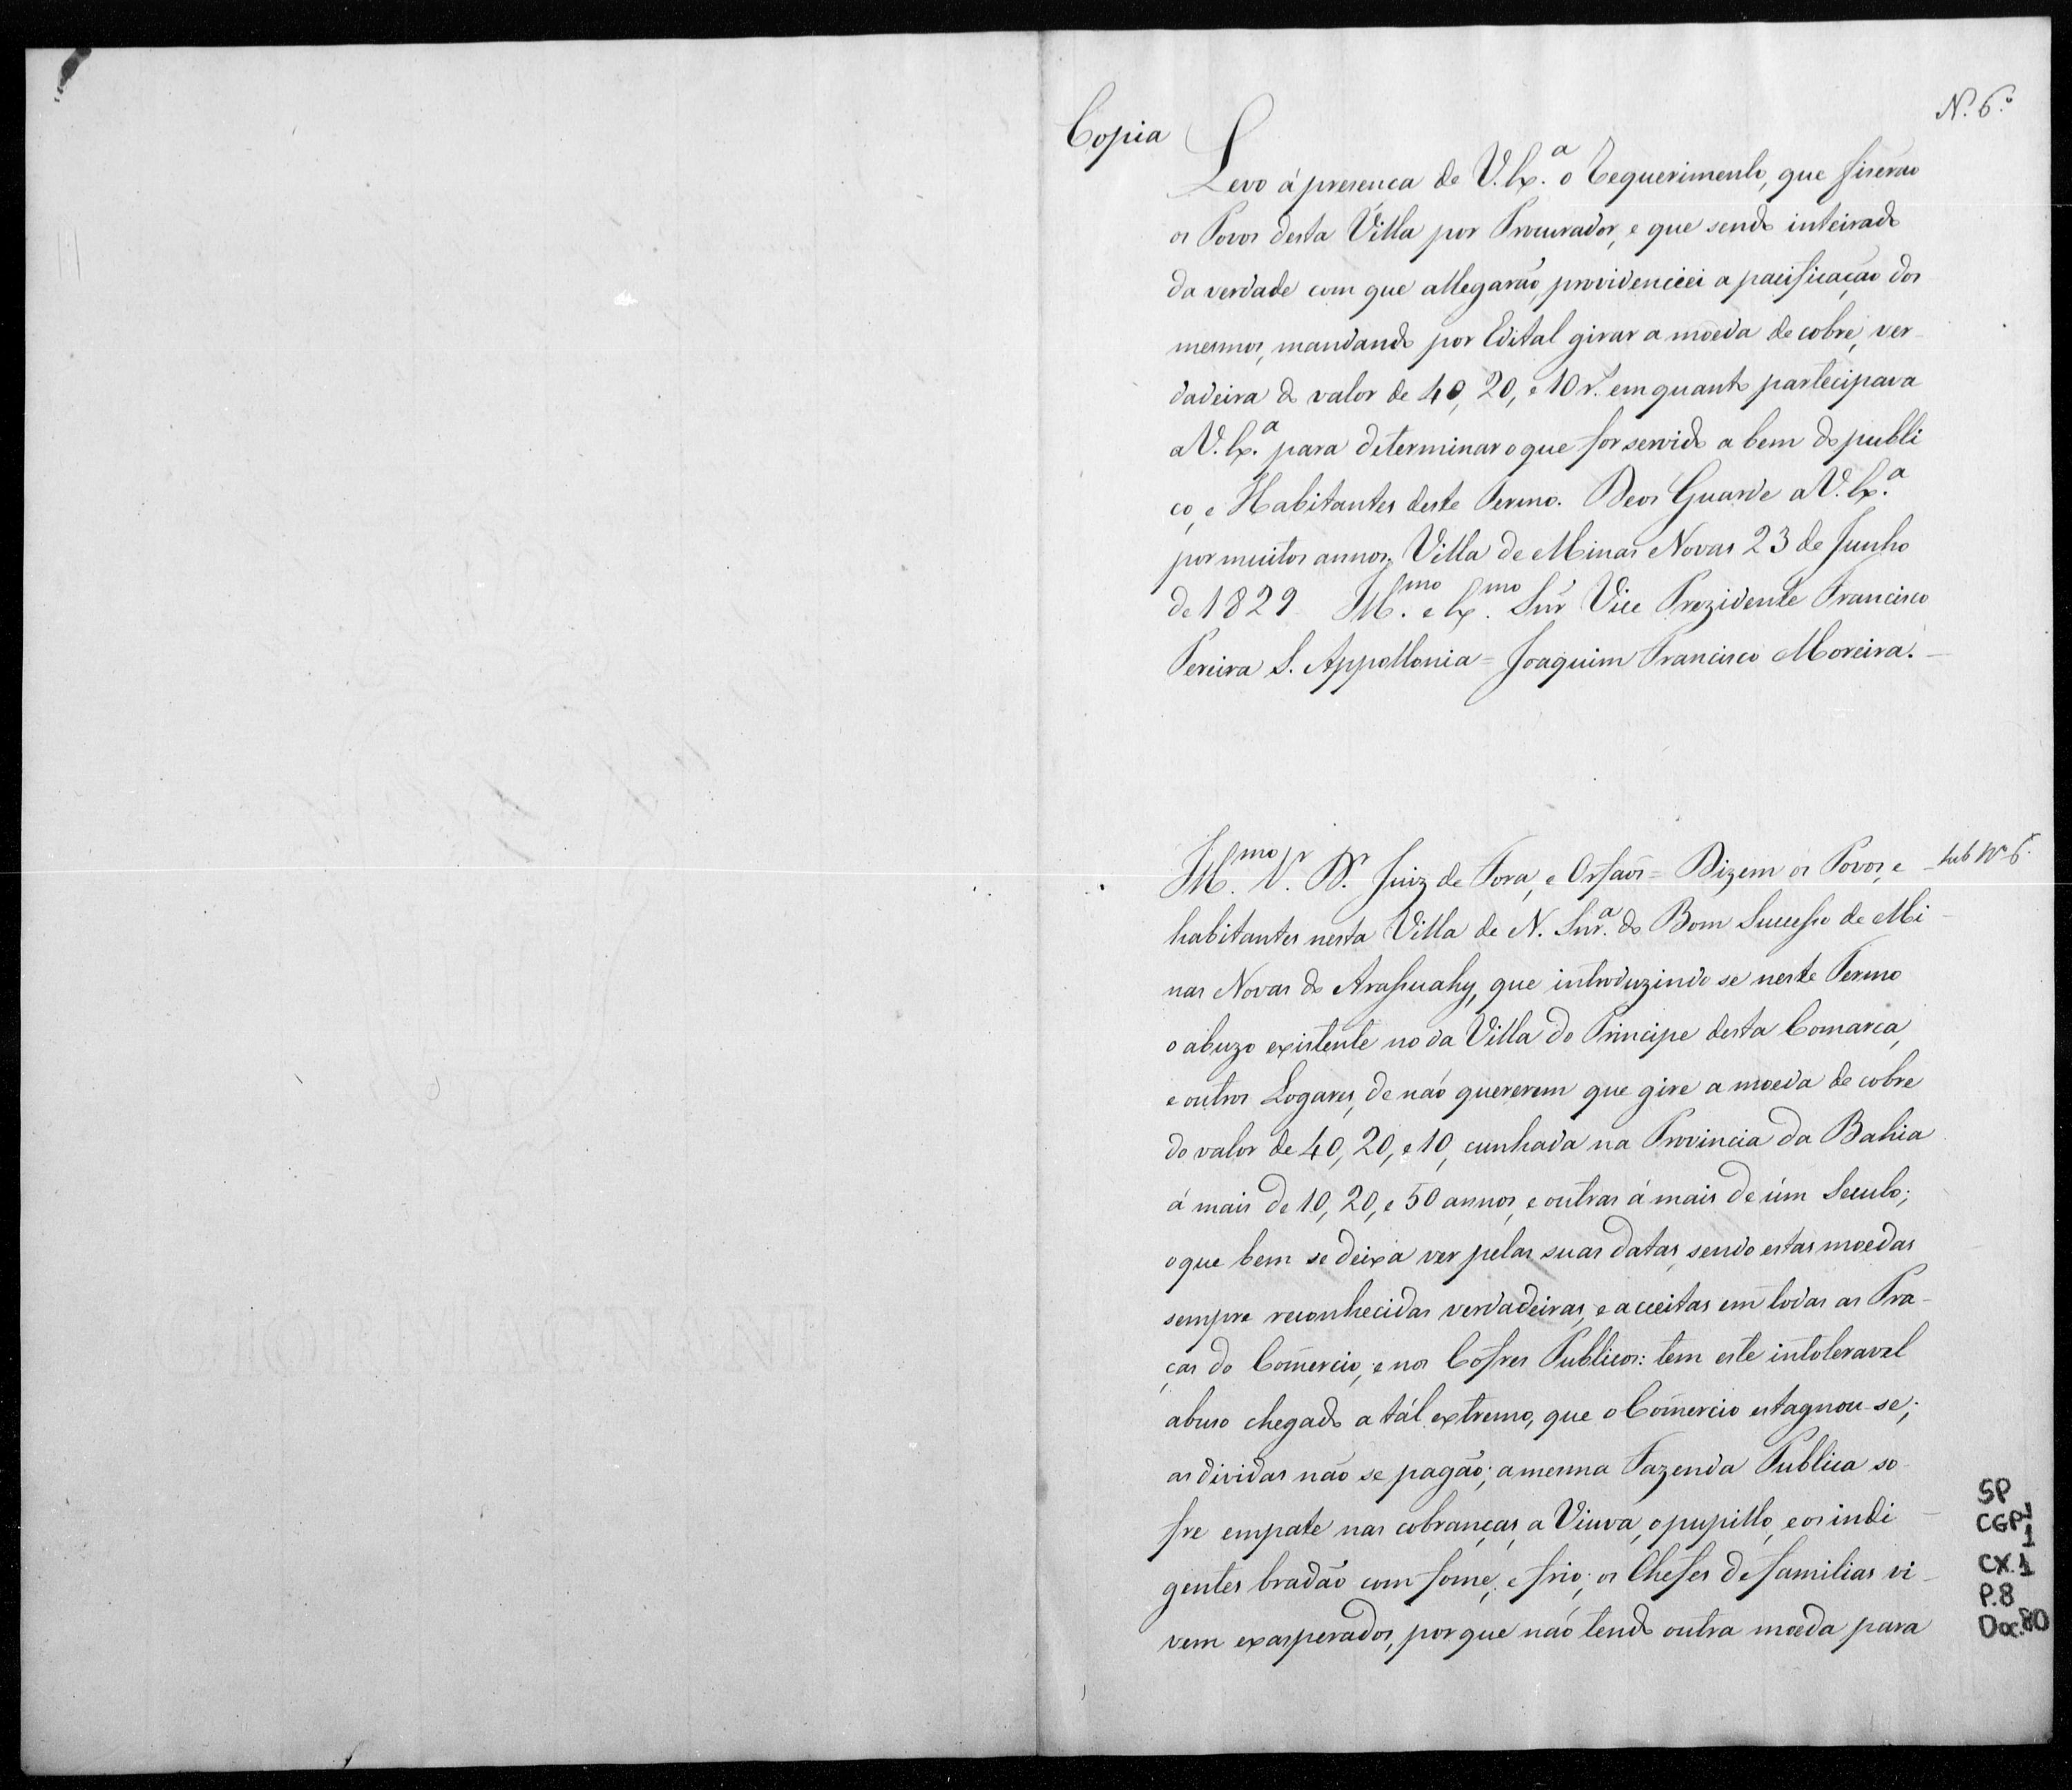 N. 6.º
Copia
Levo á presenca de V. Ex.ª o Requerimento, que fiserão
os Povos desta Villa por Procurador, e que sendo inteirado
da verdade com que allegarão, providenciei a pacificação dos
mesmos, mandando por Edital girar a moeda de cobre, ver-
dadeira do valor de 40, 20, e 10 r.s emquanto partecipava
a V. Ex.ª para determinar o que for servido a bem do publi
co, e Habitantes deste Termo. Deos Guarde a V. Ex.ª
por muitos annos. Villa de Minas Novas 23 de Junho
de 1829 Ill.mo e Ex.mo Snr̃ Vice Prezidente Francisco
Pereira S. Appollonia = Joaquim Francisco Moreira. —
Ill.mo S.r D.r Juiz de Fora, e Orfaõs = Dizem os Povos, e
Sub Nº 6.
habitantes nesta Villa de N. Snr.ª do Bom Sucesso de Mi-
nas Novas do Arassuahy, que introduzindo se neste Termo
o abuzo existente no da Villa do Principe desta Comarca,
e outros Logares, de não quererem que gire a moeda de cobre
do valor de 40, 20, e 10, cunhada na Provincia da Bahia
á mais de 10, 20, e 50 annos, e outras á mais de úm Seculo;
o que bem se deixa ver pelas suas datas, sendo estas moedas
sempre reconhecidas verdadeiras, e acceitas em todas as Pra-
ças do Comercio, e nos Cofres Publicos: tem este intoleravel
abuso chegado a tál extremo, que o Comercio estagnou-se;
as dividas não se pagão; a mesma Fazenda Publica so-
fre empate nas cobranças, a Viuva, o pupillo, e os indi-
gentes bradão com fome, e frio; os Chefes de familias vi-
vem exasperados, por que não tendo outra moeda para
SP
CGP1
1
CX.1
P.8
Doc.80